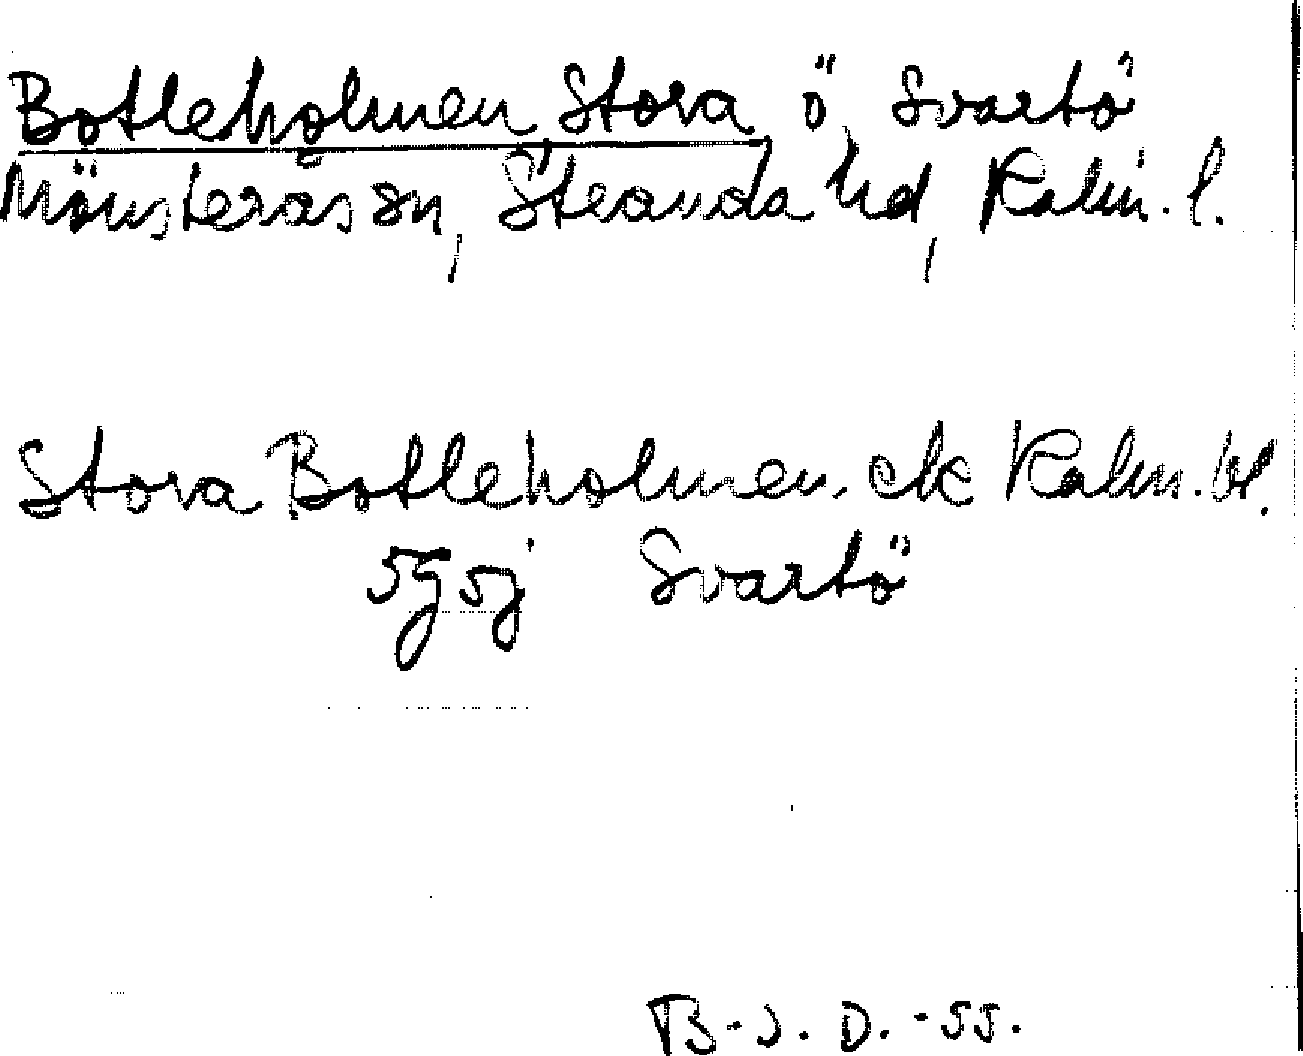 Botleholmen, Stora, ö, Svartö
Mönsterås sn, Stranda hd, Kalm. l.
Stora Botleholmen. ek Kalm. bl.
5g5j Svartö
B-J. D. -55.